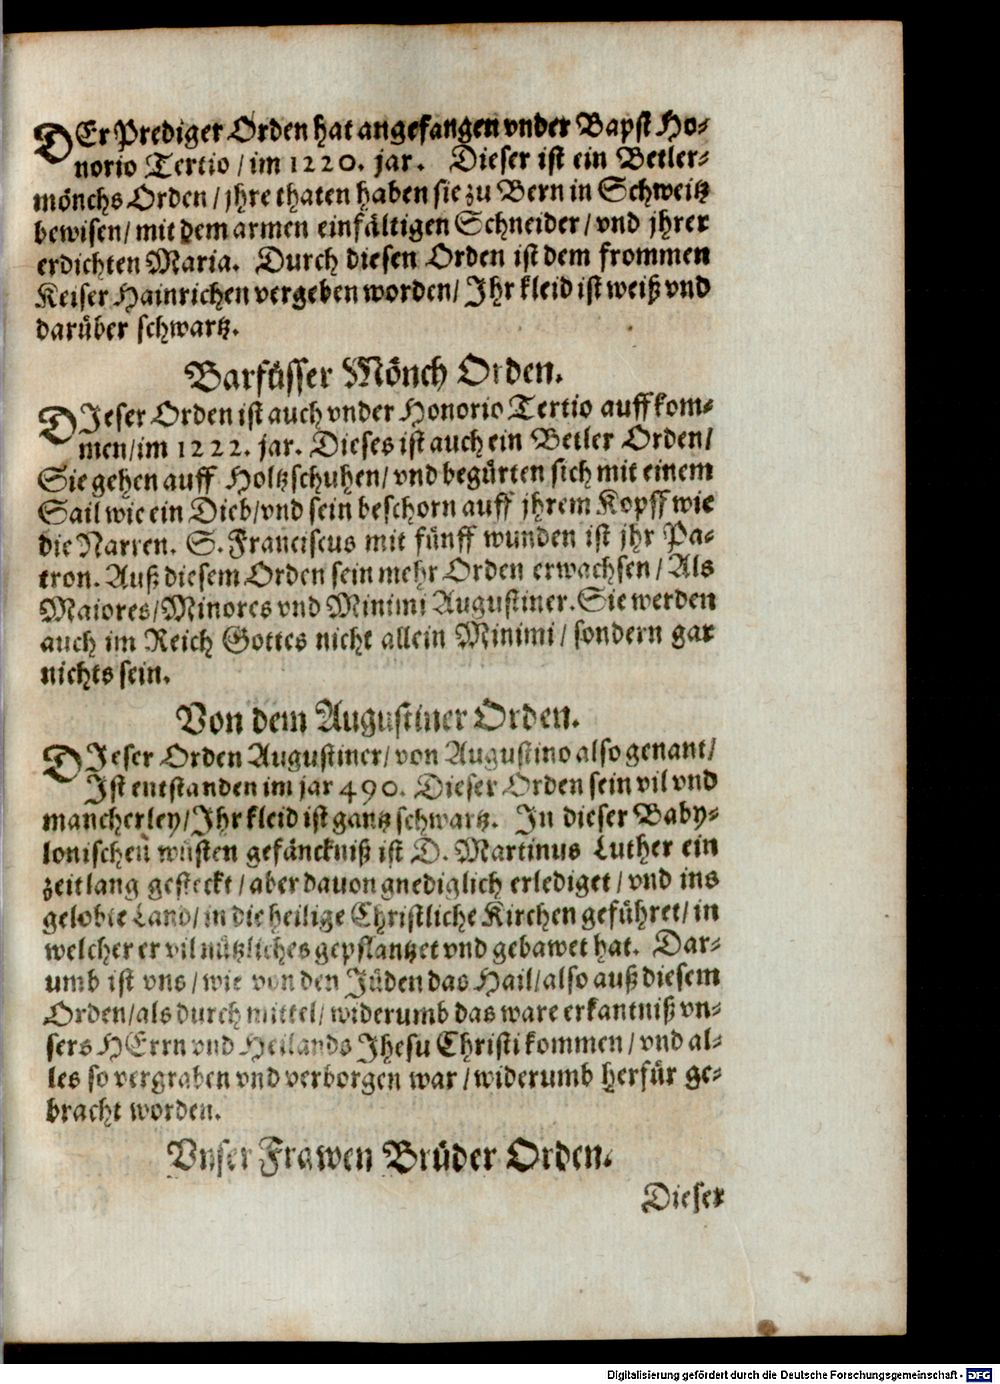 DEr Prediger Orden hat angefangen vnder Bapst Ho-
norio Tertio / im 1220. jar. Dieser ist ein Betler-
mönchs Orden / jhre thaten haben sie zu Bern in Schweitz
bewisen / mit dem armen einfältigen Schneider / vnd jhrer
erdichten Maria. Durch diesen Orden ist dem frommen
Keiser Hainrichen vergeben worden / Ihr kleid ist weiß vnd
darüber schwartz.
Barfüsser Mönch Orden.
DIeser Orden ist auch vnder Honorio Tertio auffkom-
men / im 1222. jar. Dieses ist auch ein Betler Orden /
Sie gehen auff Holtzschuhen / vnd begürten sich mit einem
Sail wie ein Dieb / vnd sein beschorn auff jhrem Kopff wie
die Narren. S. Franciscus mit fünff wunden ist jhr Pa-
tron. Auß diesem Orden sein mehr Orden erwachsen / Als
Maiores / Minores vnd Minimi Augustiner. Sie werden
auch im Reich Gottes nicht allein Minimi / sondern gar
nichts sein.
Von dem Augustiner Orden.
DIeser Orden Augustiner / von Augustino also genant /
Ist entstanden im jar 490. Dieser Orden sein vil vnd
mancherley / Ihr kleid ist gantz schwartz. In dieser Baby-
lonischen wüsten gefänckniß ist D. Martinus Luther ein
zeitlang gesteckt / aber dauon gnediglich erlediget / vnd ins
gelobte Land / in die heilige Christliche Kirchen geführet / in
welcher er vil nützliches gepflantzet vnd gebawet hat. Dar-
umb ist vns / wie von den Jüden das Hail / also auß diesem
Orden / als durch mittel / widerumb das ware erkantniß vn-
sers HErrn vnd Heilands Jhesu Christi kommen / vnd al-
les so vergraben vnd verborgen war / widerumb herfür ge-
bracht worden.
Vnser Frawen Brüder Orden.
Dieser
Digitalisierung gefördert durch die Deutsche Forschungsgemeinschaft - DFG